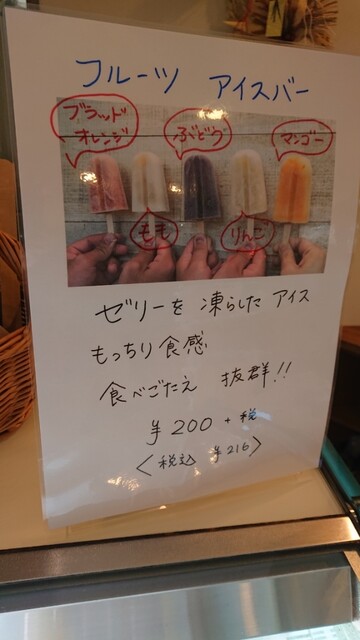 フルーツ アイスバー
ブラッド
オレンジ
もも
ぶどう
りんご
マンゴー
ゼリーを 凍らした アイス
もっちり食感
食べごたえ 抜群!!
¥200 + 税
<税込 ¥216>